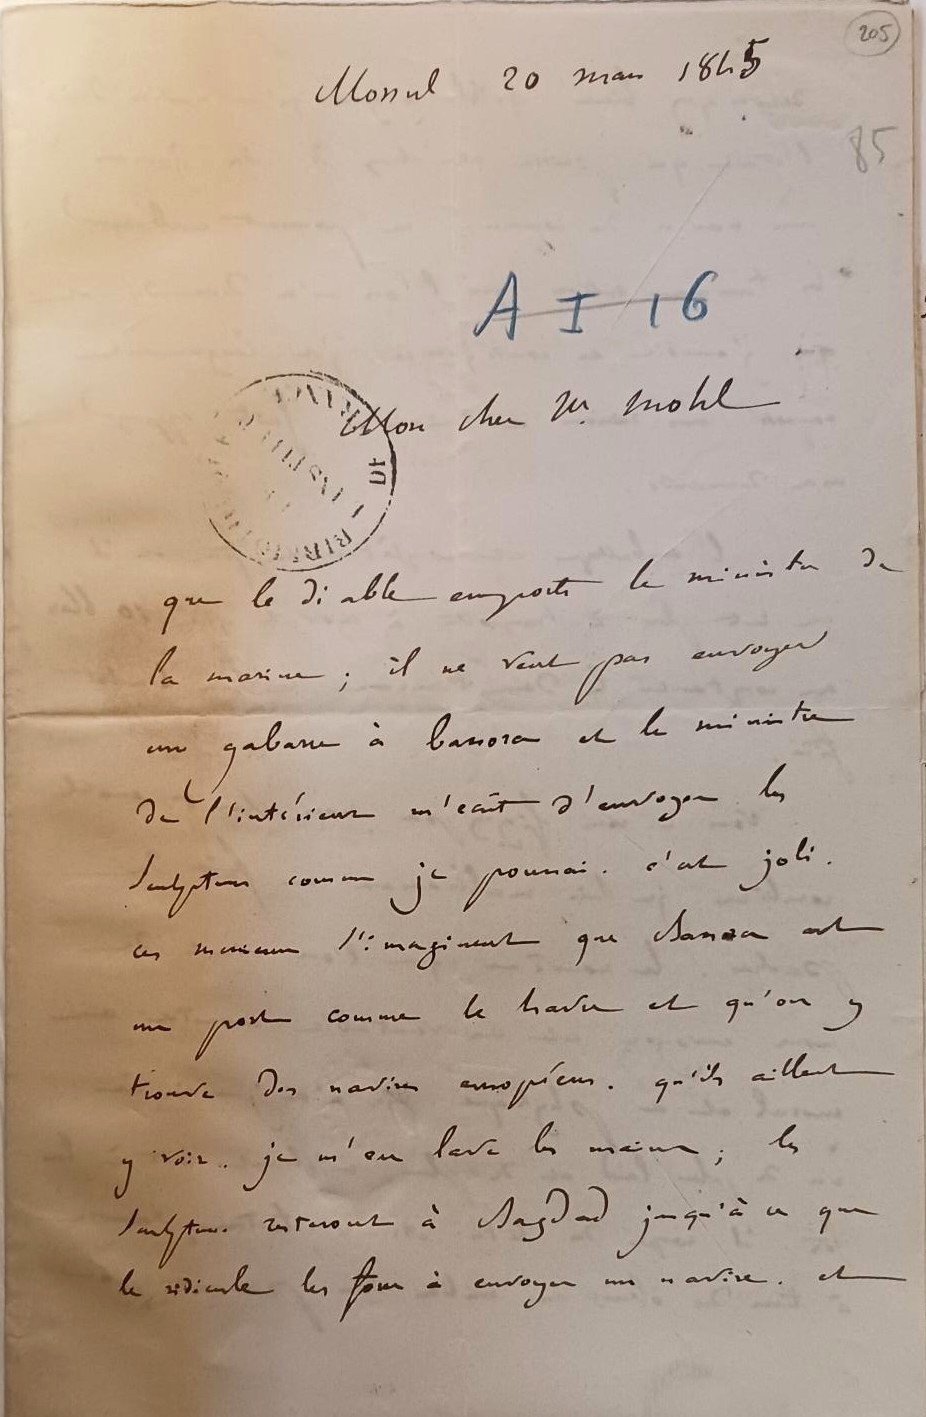 205
Mossul 20 mars 1845
85
A I 16
Mon cher Mr. Mohl
que le diable emporte le ministre de
la marine ; il ne veut pas envoyer
une gabarre à bassora et le ministre
de l'intérieur m'écrit d'envoyer les
sculptures comme je pourrai. c'est joli.
ces messieurs s'imaginent que Bassora est
un port comme le havre et qu'on y
trouve des navires européens. qu'ils aillent
y voir. je m'en lave les mains ; les
sculptures resteront à Bagdad jusqu'à ce que
le ridicule les force à envoyer un navire. et